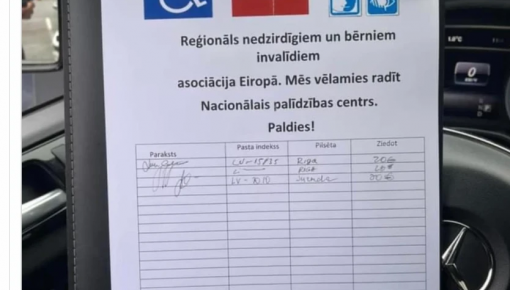 Reģionāls nedzirdīgiem un bērniem
invalīdiem
asociācija Eiropā. Mēs vēlamies radīt
Nacionālais palīdzības centrs.
Paldies!
Paraksts Pasta indekss Pilsēta Ziedot
Rīga 20€
LV-
0